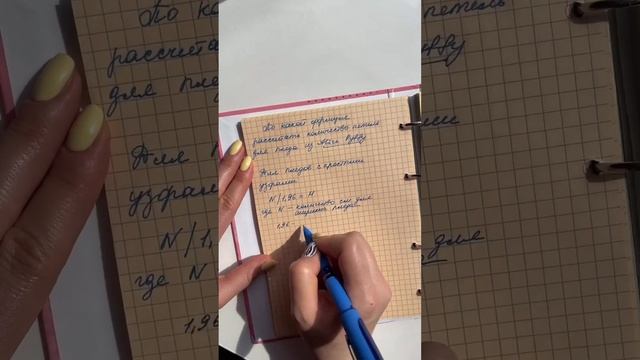 По какой формуле
рассчитать количество петель
для пледа из Alize Puffy
Для пледов с простыми
узорами
N/1,96 = H
где N - количество см для
ширины пледа
1,96 -